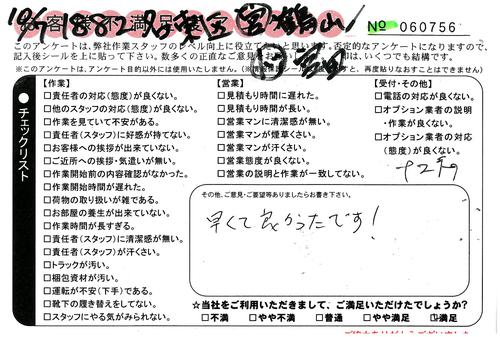 お客様不満足
№ 060756
このアンケートは、弊社作業スタッフのレベル向上に役立て
否定的なアンケートになりますので、
記入後シールを上に貼って下さい。数多くの正直なご意見
は、いくつでも結構です。
※このアンケートは、アンケート目的以外には使用いたしません。
と、再度貼りなおすことはできません)
チェックリスト
【作業】
□責任者の対応(態度)が良くない。
□他のスタッフの対応(態度)が良くない。
□作業を見ていて不安がある。
□責任者(スタッフ)に好感が持てない。
□お客様への挨拶が出来ていない。
□ご近所への挨拶・気遣いが無い。
□作業開始前の内容確認がなかった。
□作業開始時間が遅れた。
□荷物の取り扱いが雑である。
□お部屋の養生が出来ていない。
□作業時間が長すぎる。
□責任者(スタッフ)に清潔感が無い。
□責任者(スタッフ)が汗くさい。
□トラックが汚い。
□梱包資材が汚い。
□運転が不安(下手)である。
□靴下の履き替えをしてない。
□スタッフにやる気がみられない。
【営業】
□見積もり時間に遅れた。
□見積もり時間が長い。
□営業マンに清潔感が無い。
□営業マンが煙草くさい。
□営業マンが汗くさい。
□営業態度が良くない。
□営業の説明と作業が一致してない。
【受付・その他】
□電話の対応が良くない。
□オプション業者の説明
・作業が良くない。
□オプション業者の対応
(態度)が良くない。
その他、ご意見・ご要望等ありましたらお書き下さい。
早くて良かったです!
☆当社をご利用いただきまして、ご満足いただけたでしょうか?
□不満 □やや不満 □普通 □やや満足 □満足